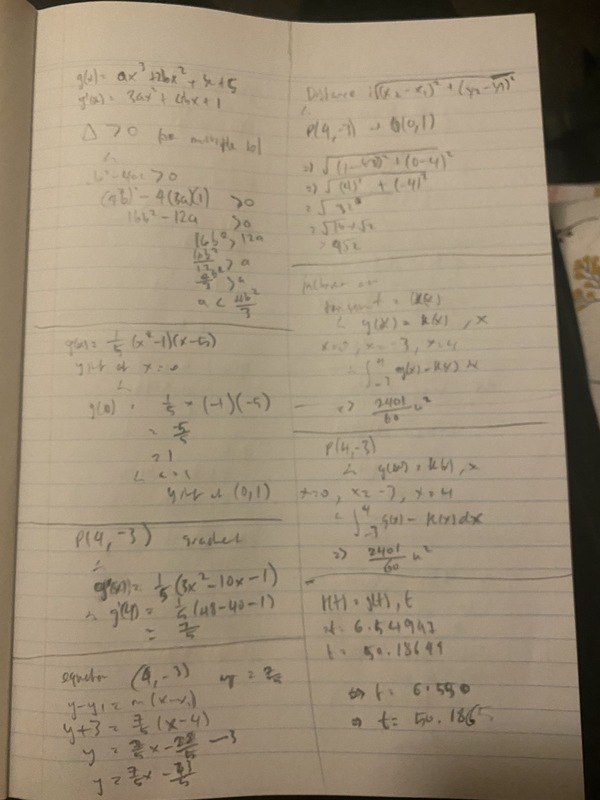 g(x) = ax³ + 2bx² + x + 5
g'(x) = 3ax² + 4bx + 1
Δ > 0 for multiple
∴
b² - 4ac > 0
(4b)² - 4(3a)(1) > 0
16b² - 12a > 0
16b² > 12a
16b²/12 > a
a < 4b²/3
g(x) = 1/5 (x² - 1)(x - 5)
y int at x = 0
∴
g(0) = 1/5 × (-1)(-5)
= 5/5
= 1
∴ c = 1
y int at (0, 1)
P(4, -3) gradient
∴
g'(x) = 1/5 (3x² - 10x - 1)
∴ g'(4) = 1/5 (48 - 40 - 1)
= 7/5
equation (4, -3) m = 7/5
y - y₁ = m(x - x₁)
y + 3 = 7/5 (x - 4)
y = 7/5 x - 28/5 - 3
y = 7/5 x - 43/5
Distance √(x₂ - x₁)² + (y₂ - y₁)²
∴
P(4, -3) → Q(0, 1)
=> √(4)² + (-4)²
= √32
= √16 × √2
= 4√2
tangent = k(x)
∴ g(x) = k(x), x
x = 0, x = -3, x = 4
∴ ∫₋₃⁴ g(x) - k(x) dx
=> 2401/60 u²
P(4, -3)
∴ g(x) = k(x), x
x = 0, x = -3, x = 4
∴ ∫₋₃⁴ g(x) - k(x) dx
=> 2401/60 u²
t = 6.54943
t = 50.18649
=> t = 6.550
=> t = 50.1865